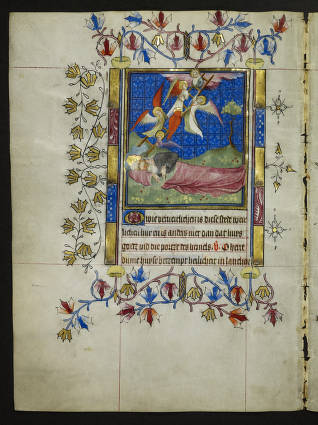 O wie verveerlichen is dese stede wer
lichen hier en is anders niet dan dat huys
godes und die porte des hemels. V. O here
dinre huyse betemt heilicheit in lancheit